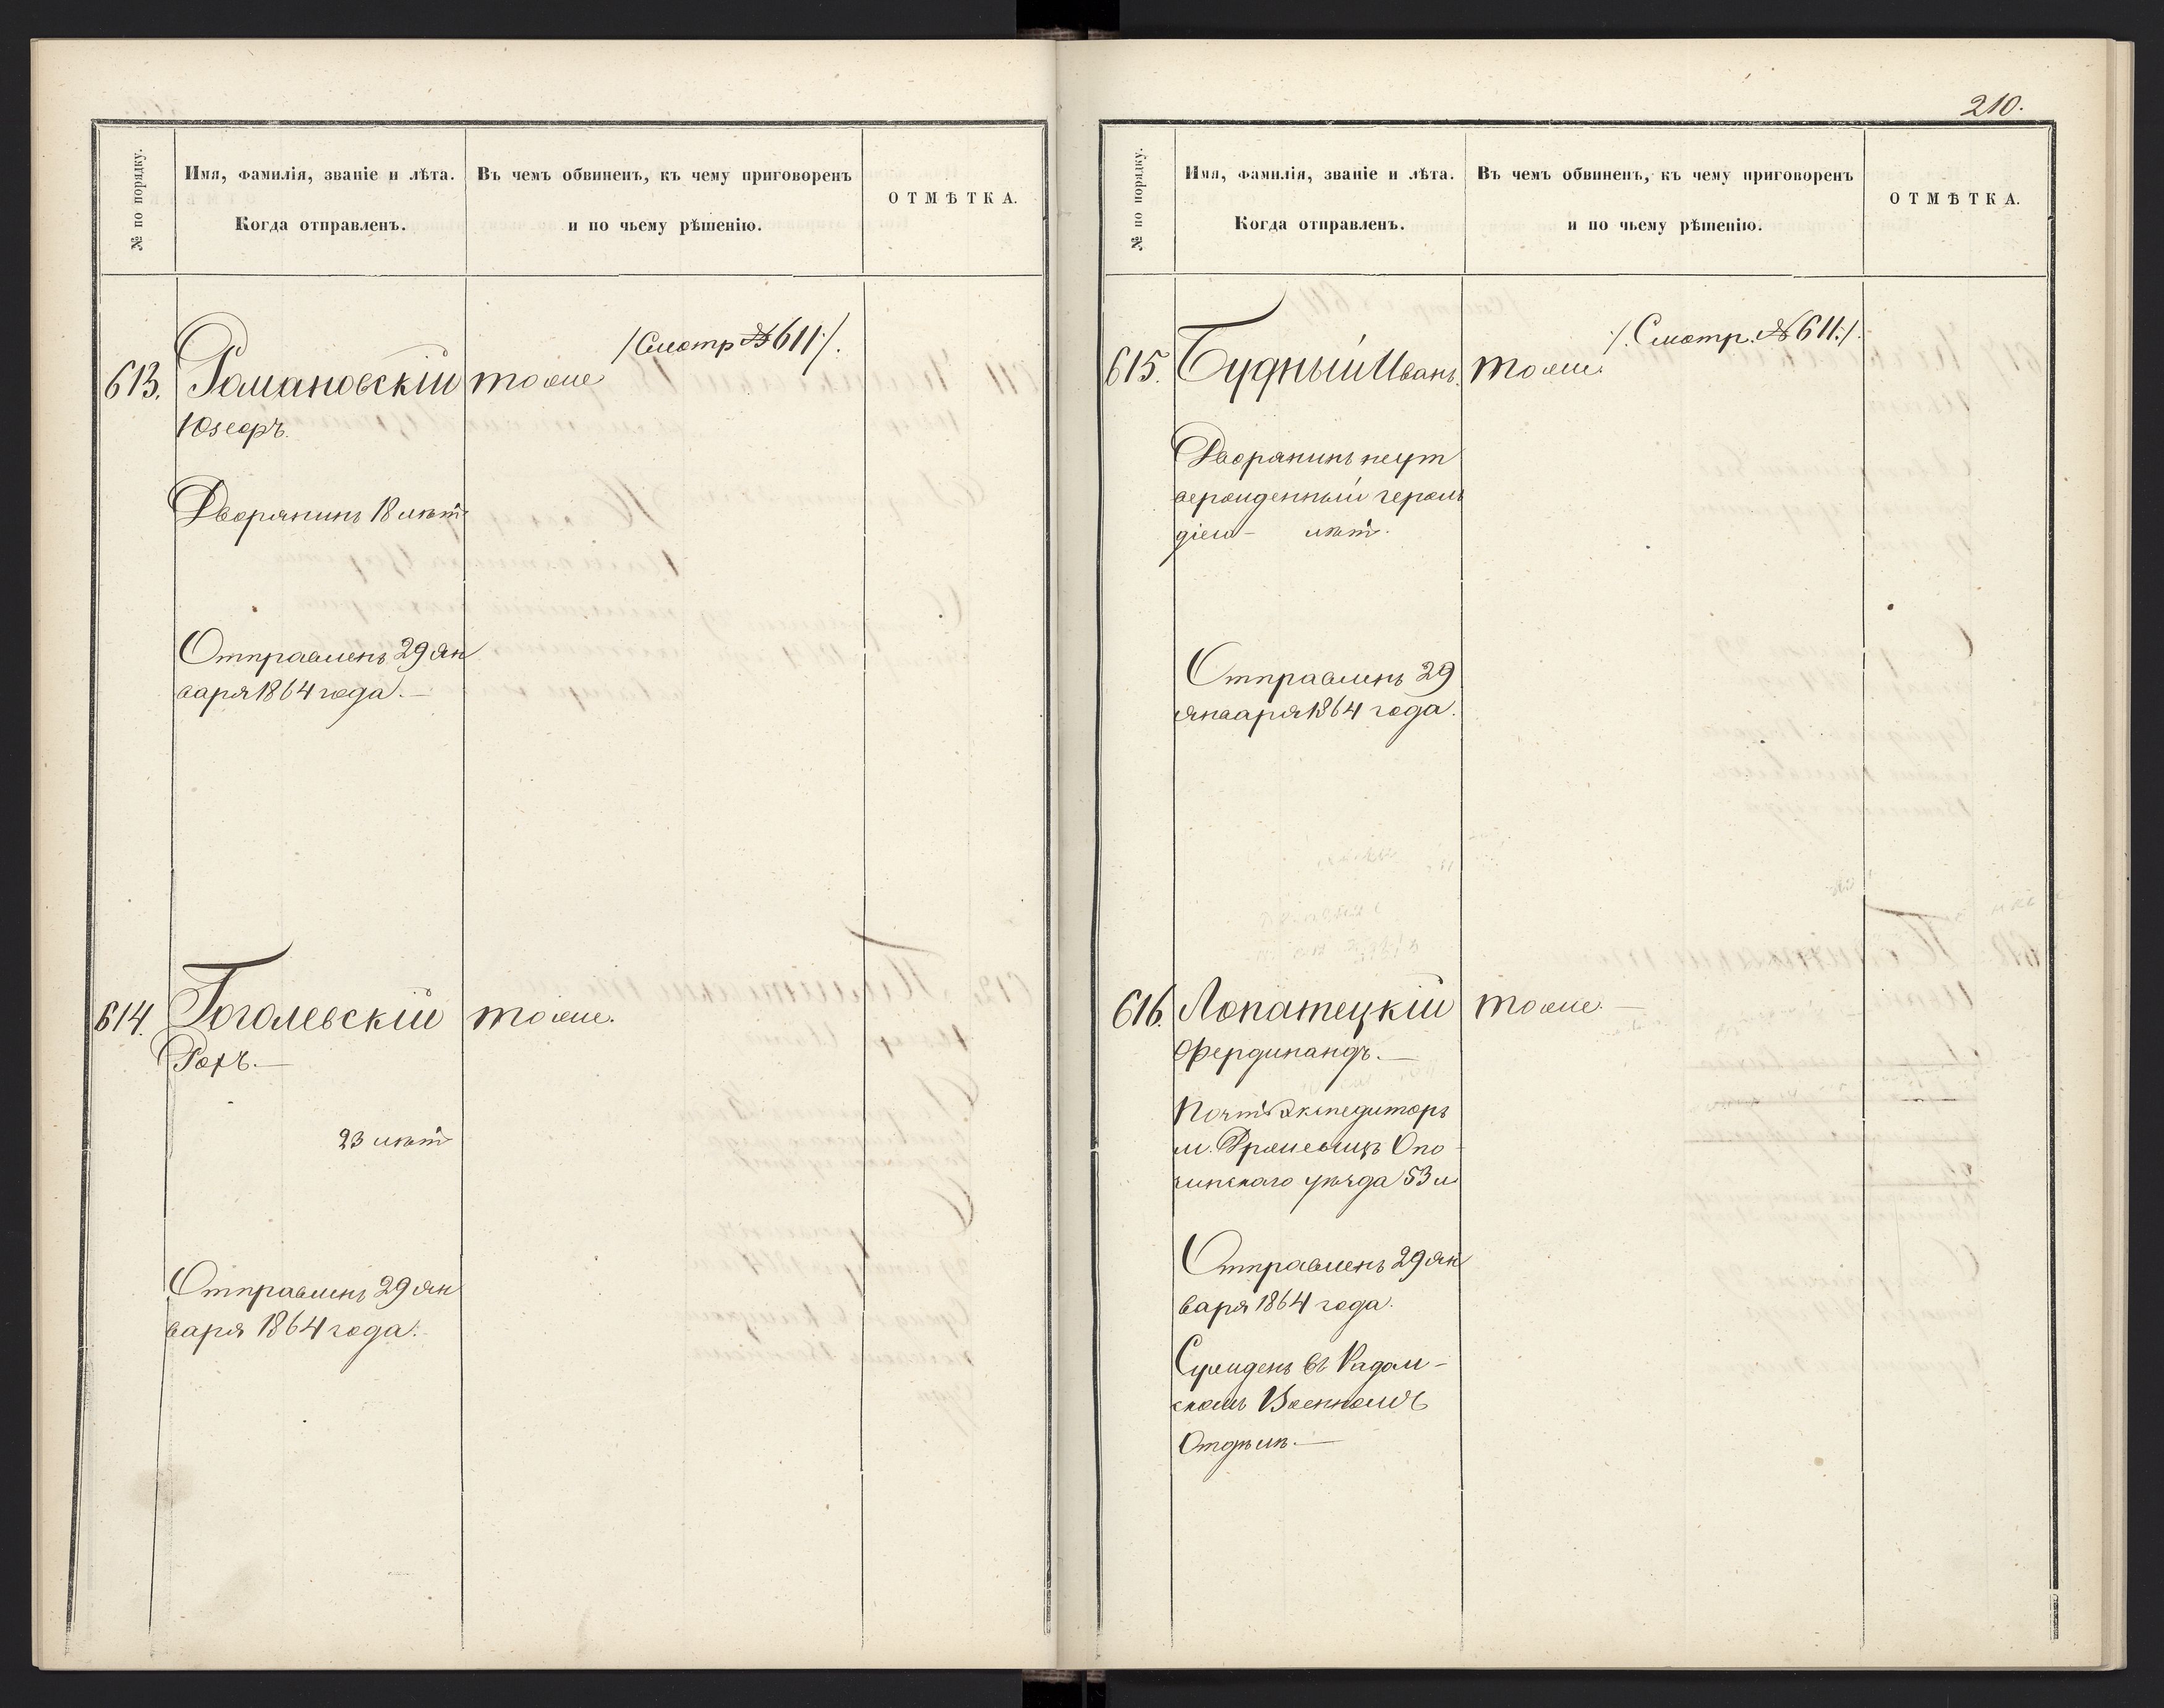 № по порядку.
Имя, фамилія, званіе и лѣта.
Когда отправленъ.
Въ чемъ обвиненъ, къ чему приговоренъ
и по чьему рѣшенію.
ОТМѢТКА.
/Смотр № 611:/.
613. Романовскій тоже
Юзефъ.
Дворянинъ 18 лѣтъ
Отправленъ 29 ян
варя 1864 года. —
614. Гоголевскій тоже.
Рохъ. —
23 лѣтъ
Отправленъ 29 ян
варя 1864 года.
210.
№ по порядку.
Имя, фамилія, званіе и лѣта.
Когда отправленъ.
Въ чемъ обвиненъ, къ чему приговоренъ
и по чьему рѣшенію.
ОТМѢТКА.
/. Смотр. № 611:/.
615. Будный Иванъ. тоже.
Дворянинъ неут
вержденный героль
діею — лѣтъ.
Отправленъ 29
января 1864 года.
616. Лопатецкій тоже. —
Фердинандъ. —
Почтъ Экспедиторъ
м. Држевицъ Опо
чинскаго уѣзда 53 л
Отправленъ 29 ян
варя 1864 года.
Сужденъ въ Радом-
скомъ Военномъ
Отдѣлѣ. —